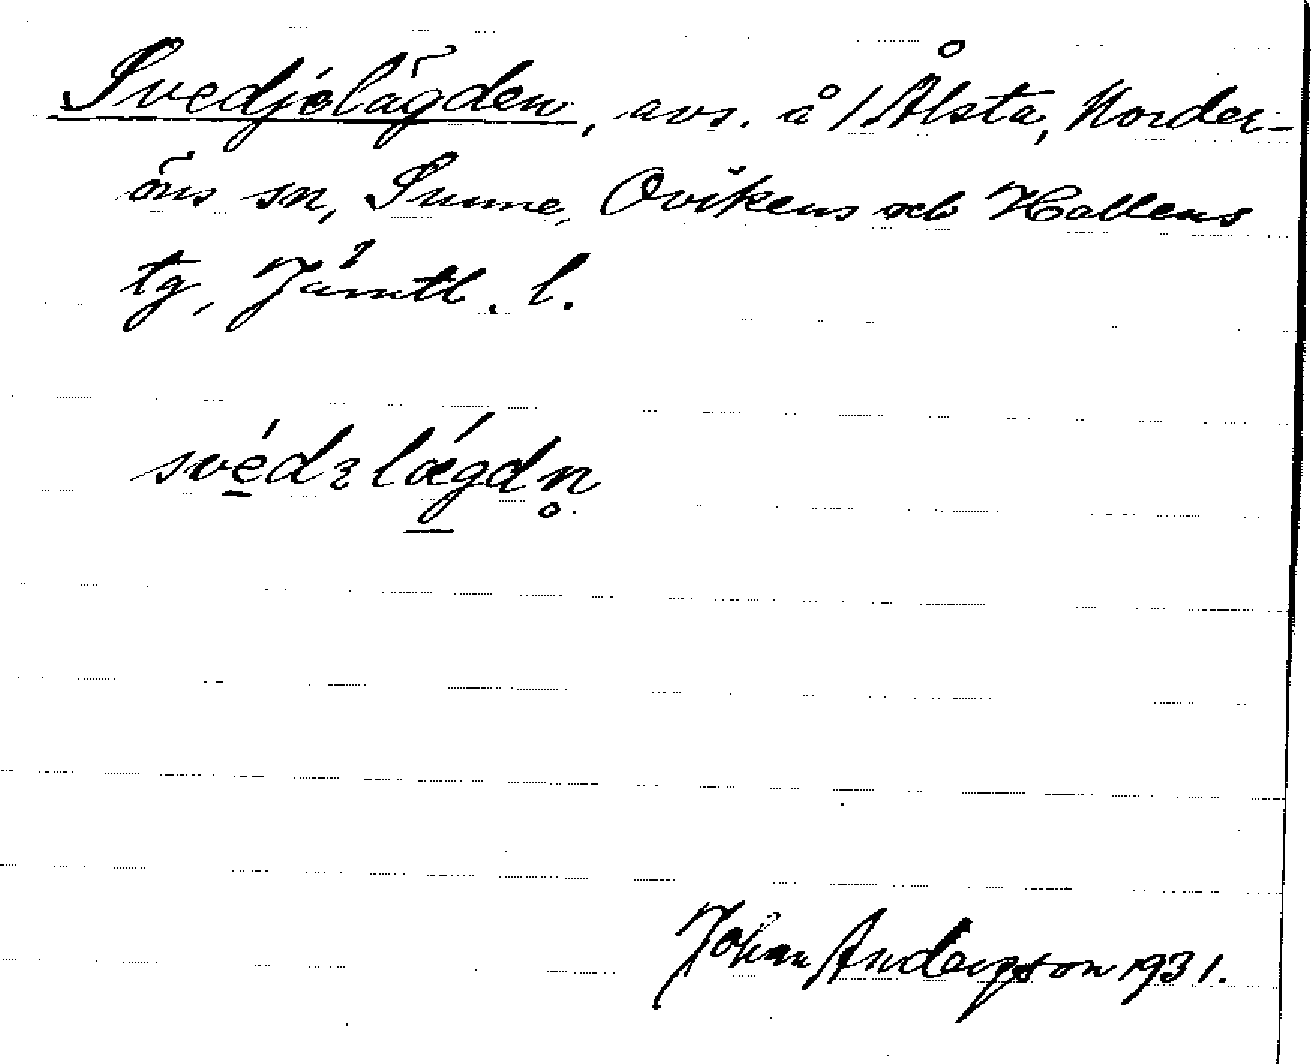 Svedjelägden, avs. å Ålsta, Norder-
öns sn, Sunne, Ovikens och Hallens
tg, Jämtl. l.
své̱dɜlǽ̱gdn̥
Johan Andersson 1931.